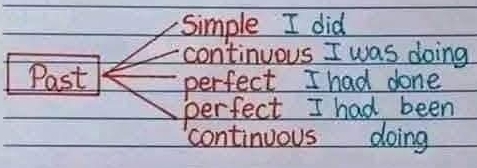 Simple I did
continuous I was doing
Past
perfect I had done
perfect I had been
continuous doing